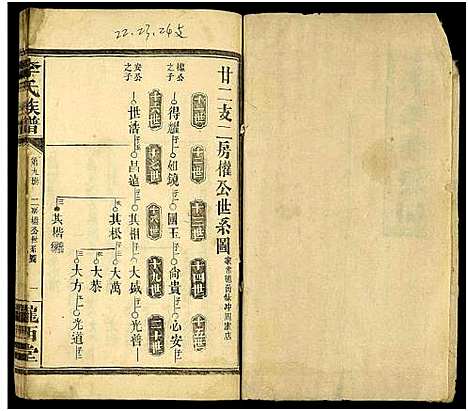 22.23.24支
廿二支二房權公世系圖
十一世
十二世
十三世
十四世
十五世
權公之子
得耀
如鏡
國玉
尚貴
心安
十六世
十七世
十八世
十九世
二十世
安公之子
世浩
昌遠
其相
大盛
光善
其松
大萬
大恭
光道
其階
大方
李氏族譜
第九冊
二房權公世系圖
一
隴西堂